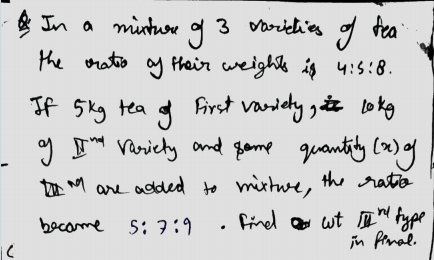 Q In a mixture of 3 varieties of tea
the ratio of their weights is 4:5:8.
If 5kg tea of First variety, 10kg
of IInd Variety and some quantity (x) of
IIIrd are added to mixture, the ratio
became 5:7:9 . Find wt IIIrd type
in final.